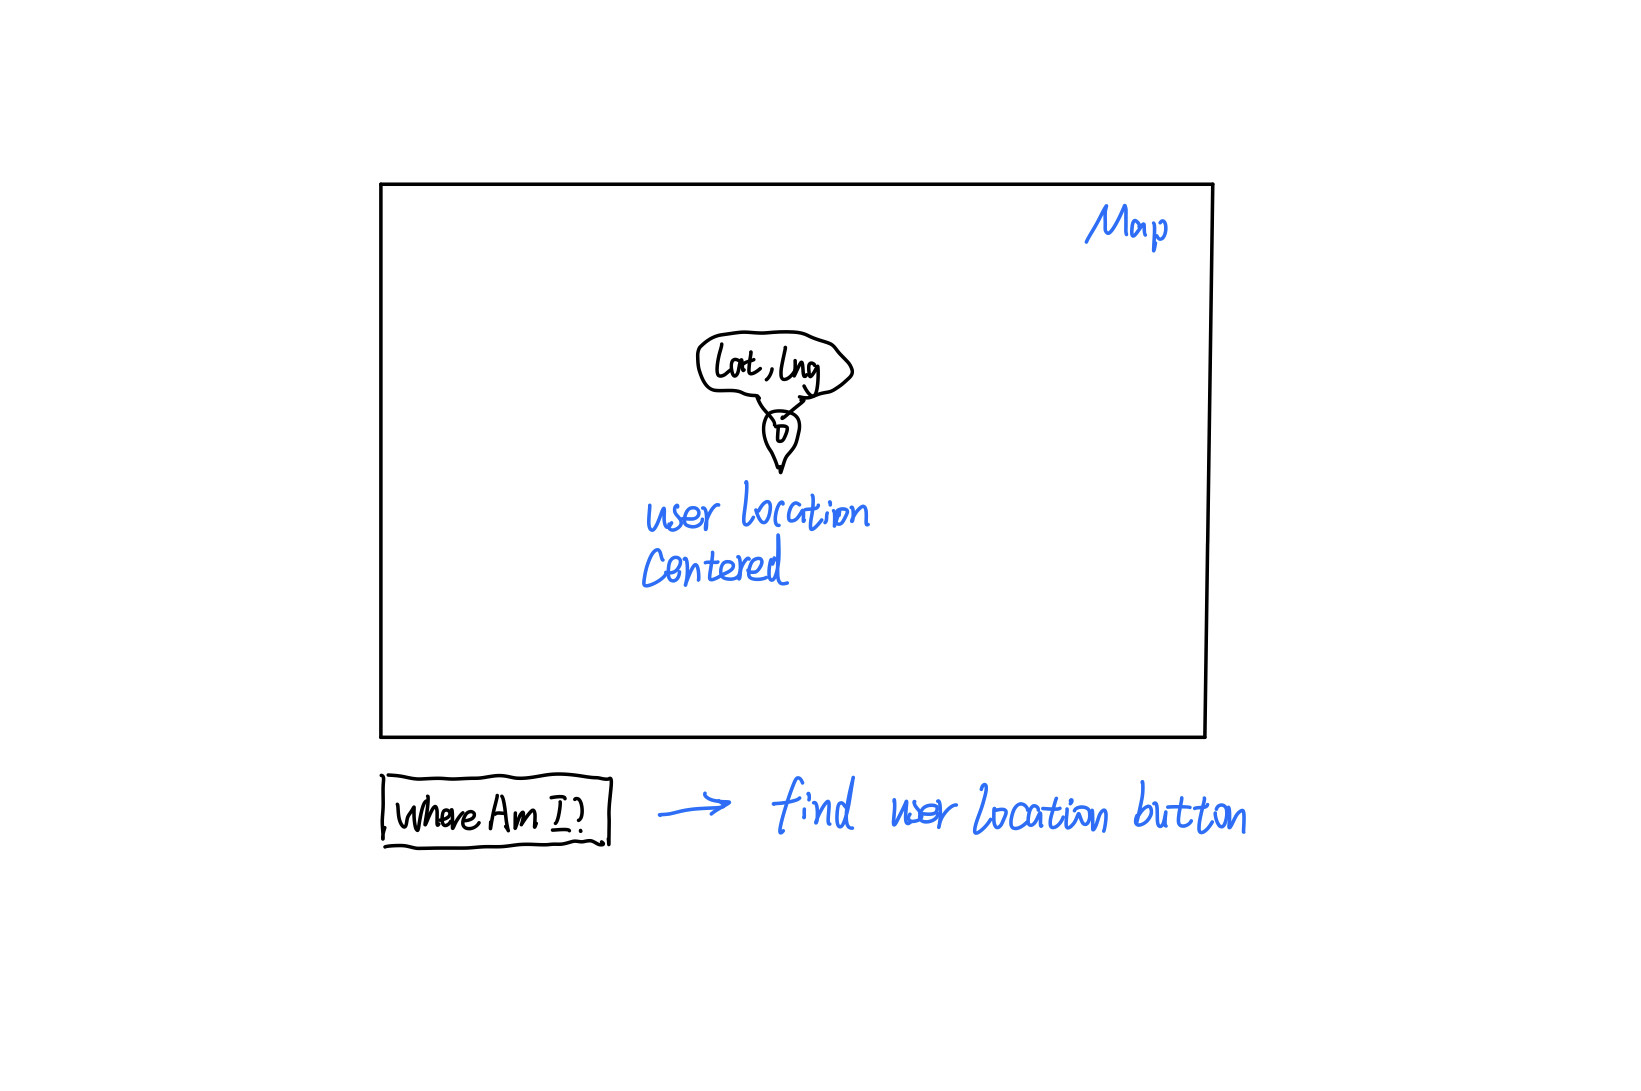 Map
Lat, lng
user location
Centered
Where Am I?
find user location button